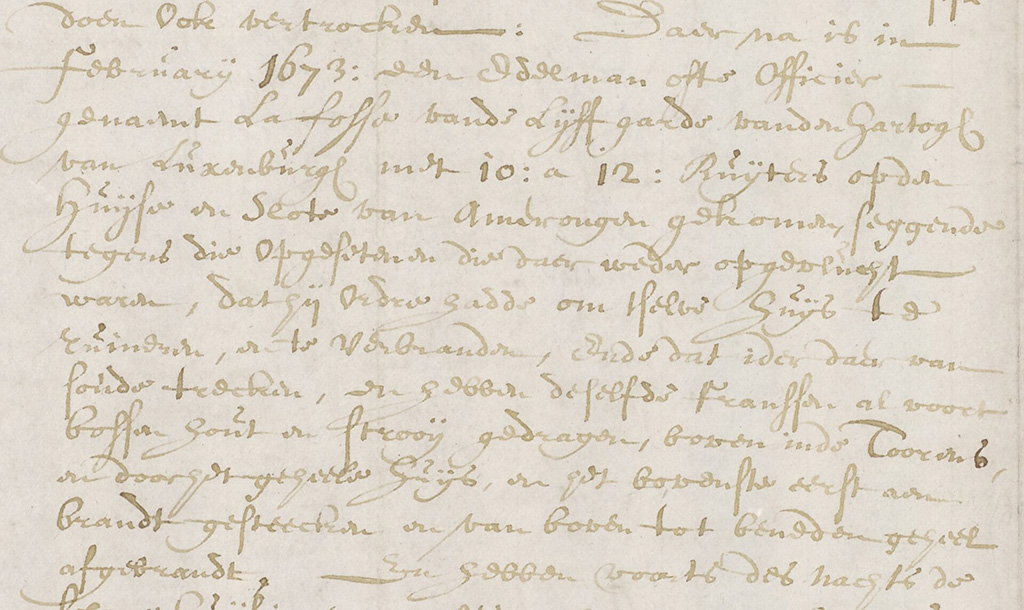 doen Ook vertrocken : Daer na is in
February 1673: een Edelman ofte Officier
genaemt La fosse vande Lyff garde vanden Hartogh
van Luxenburgh met 10: a 12: Ruyters op den
Huijse en Slote van Amerongen gekomen, seggende
tegens die Opgesetenen die daer weder op gevlucht
waren, dat hij Ordre hadde om tselve Huijs te
ruineren, en te Verbranden, Ende dat ider daer van
soude trecken, en hebben deselfde Franssen al voort
bossen hout en strooij gedragen, boven inde Toorens,
en door het geheele Huijs, en het bovenste eerst aen
brandt gesteecken en van boven tot beneden geheel
afgebrandt, En hebben voorts des nachts de